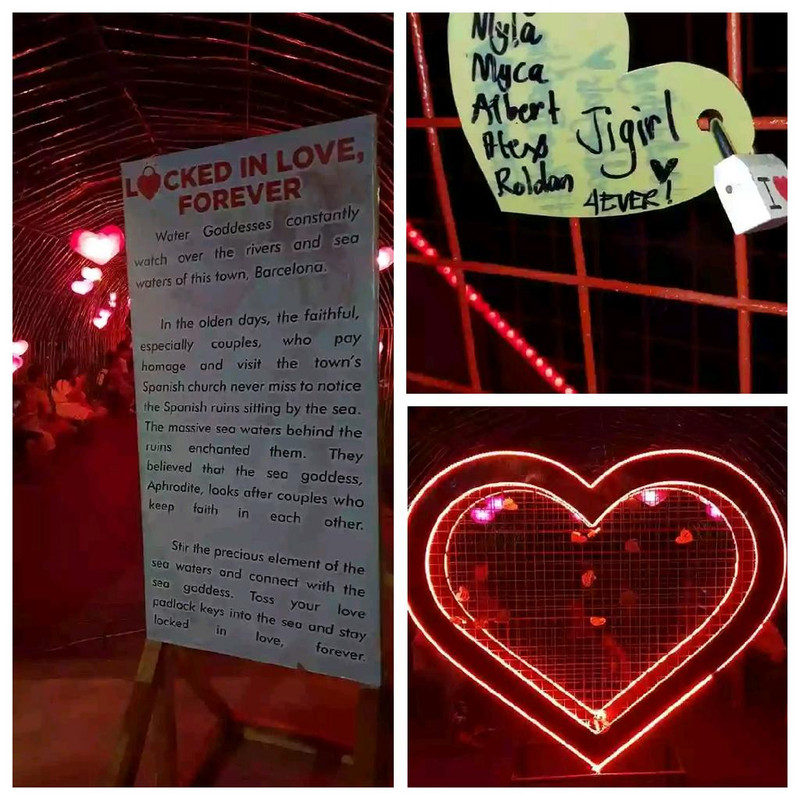 LOCKED IN LOVE,
FOREVER
Water Goddesses constantly
watch over the rivers and sea
waters of this town, Barcelona.
In the olden days, the faithful,
especially couples, who pay
homage and visit the town's
Spanish church never miss to notice
the Spanish ruins sitting by the sea.
The massive sea waters behind the
ruins enchanted them. They
believed that the sea goddess,
Aphrodite, looks after couples who
keep faith in each other.
Stir the precious element of the
sea waters and connect with the
sea goddess. Toss your love
padlock keys into the sea and stay
locked in love, forever.
Myla
Myca
Albert
Roldan
Jigirl
4EVER!
I